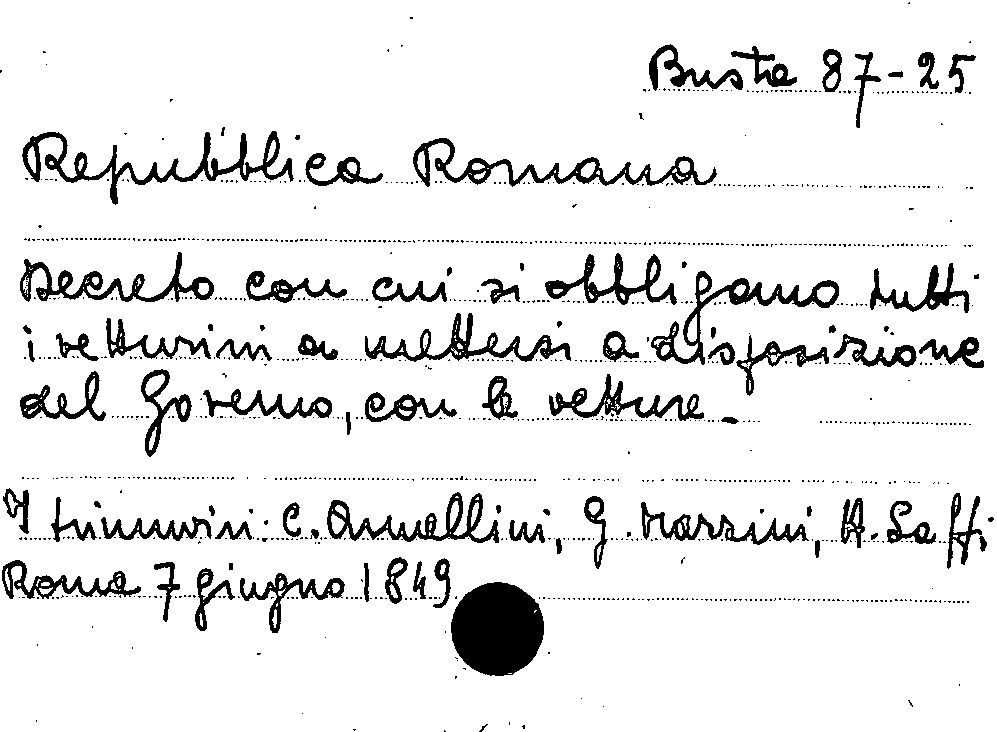 Busta 87-25
Repubblica Romana
Decreto con cui si obbligano tutti
i vetturini a mettersi a disposizione
del Governo, con le vetture.
I triumviri: C. Armellini, G. Mazzini, A. Saffi
Roma 7 giugno 1849